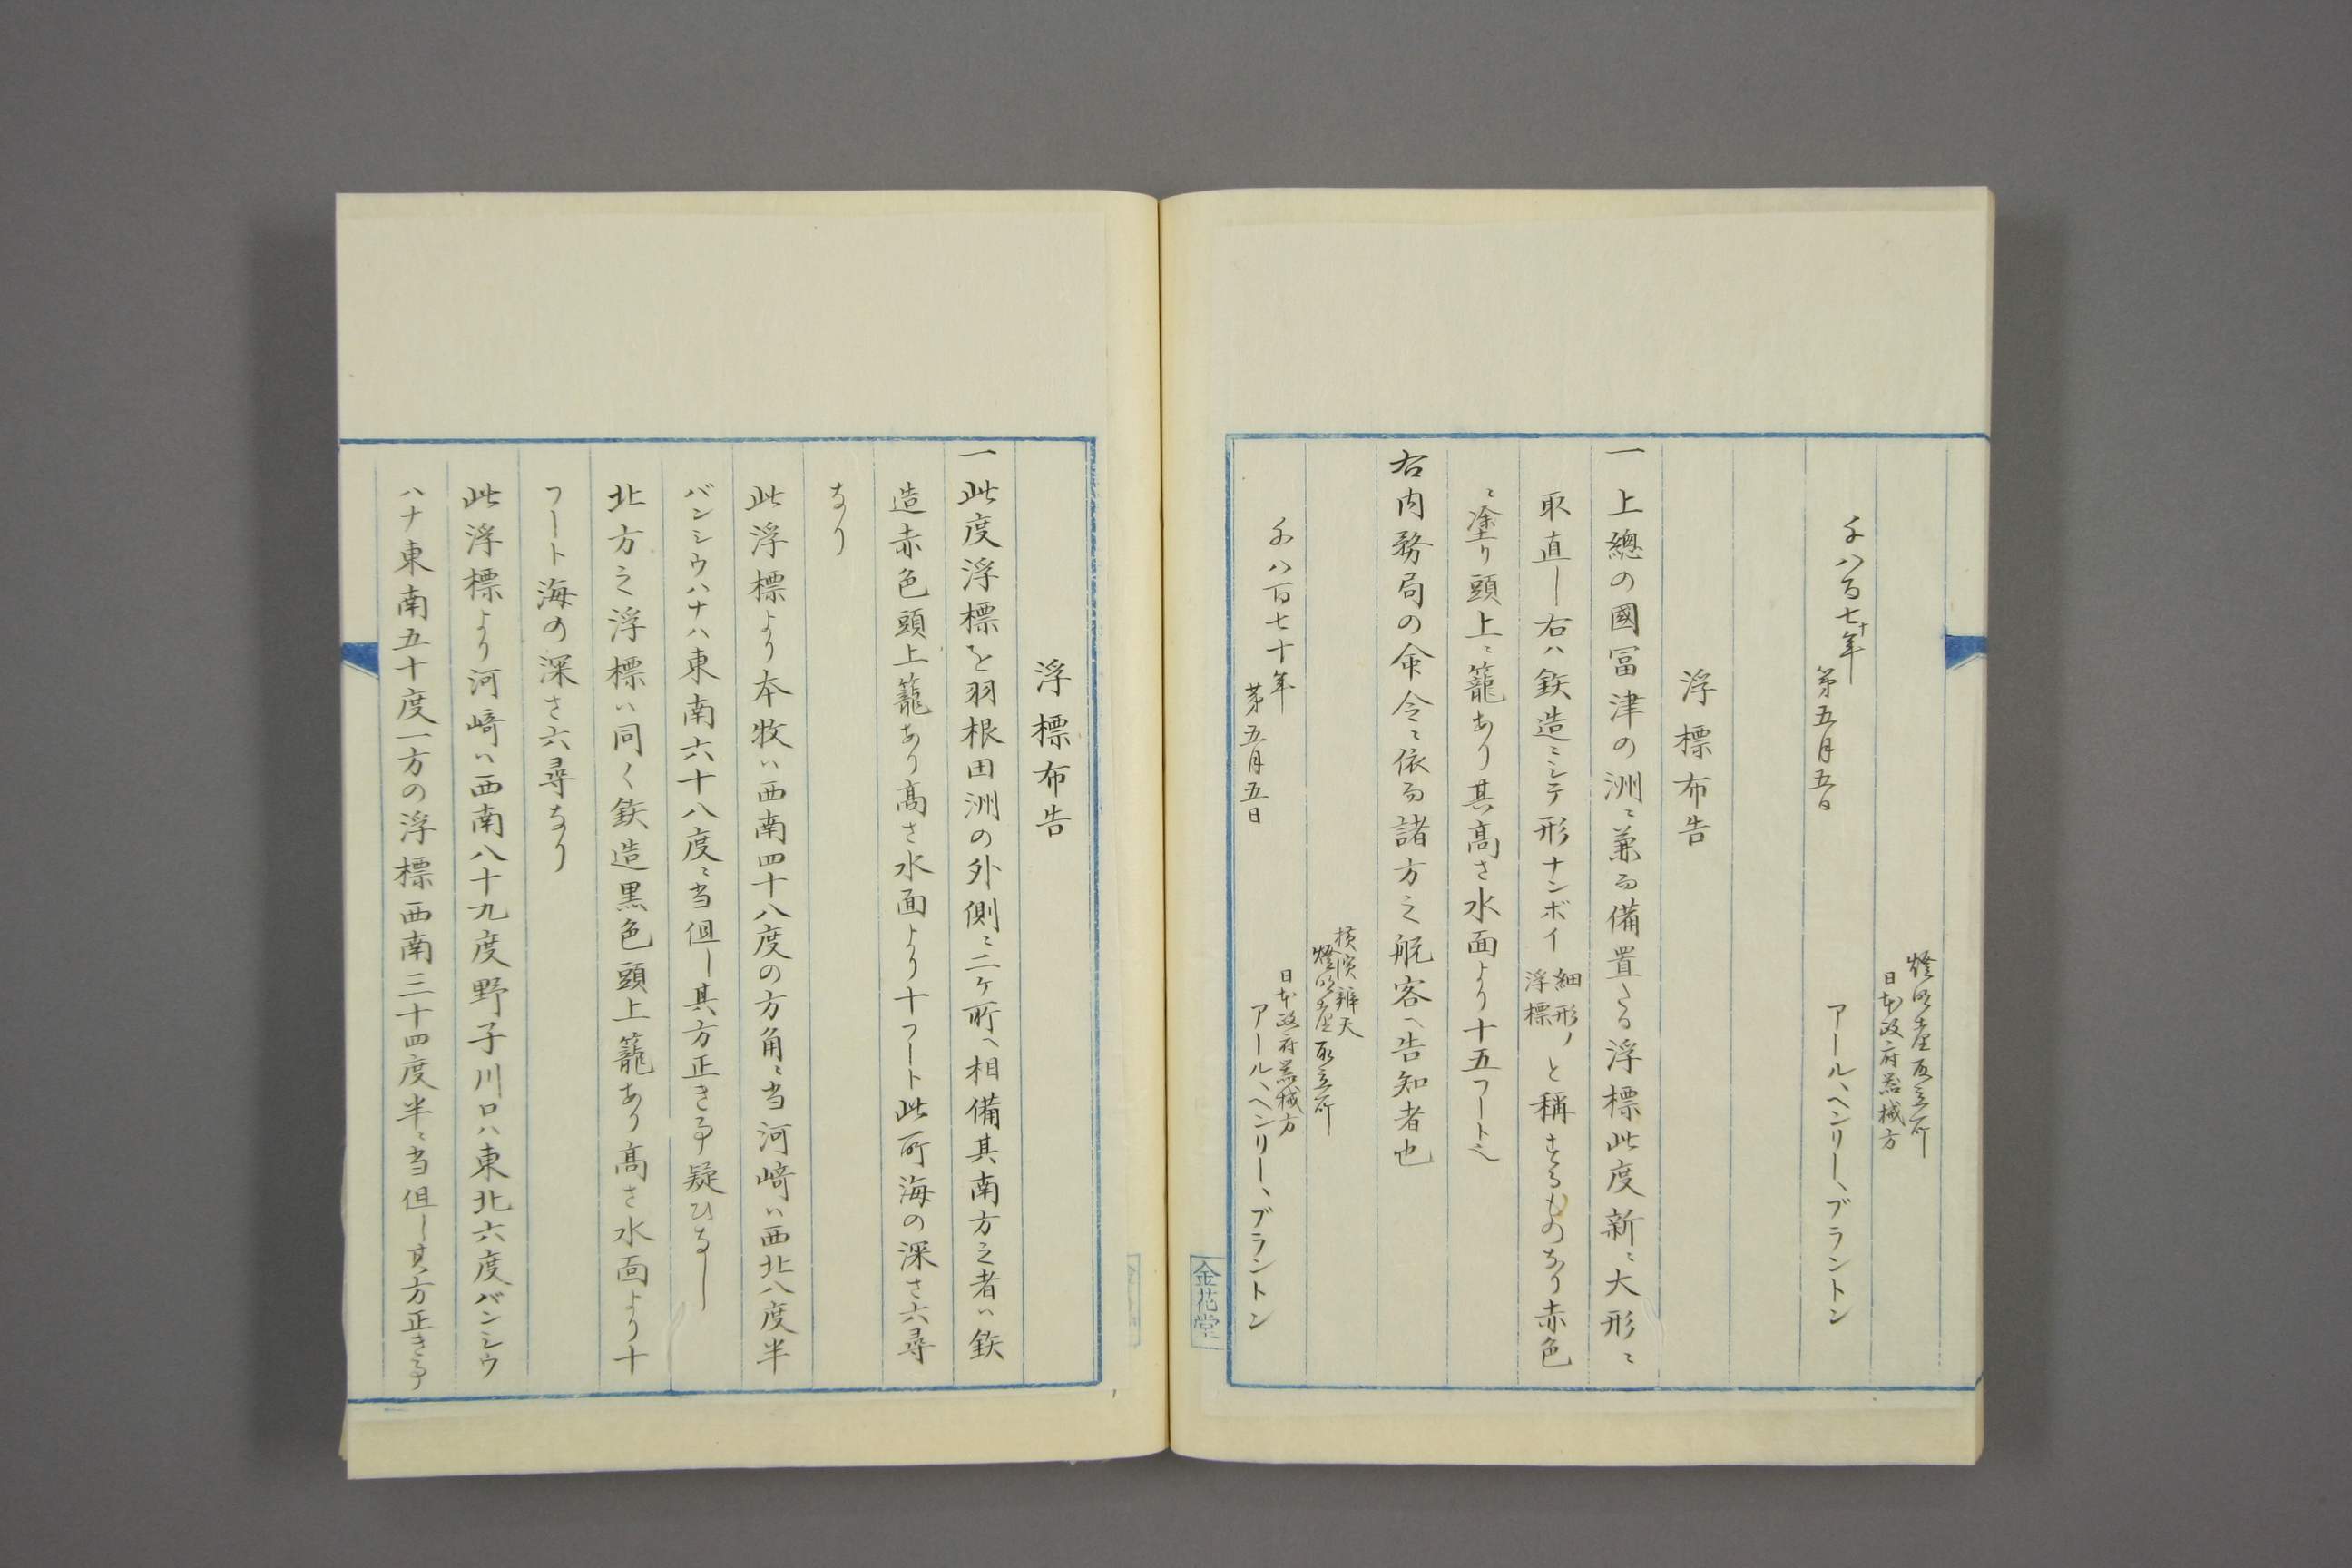 燈明臺取立所
日本政府器械方
アール、ヘンリー、ブラントン
千八百七十年
第五月五日
浮標布告
一上總の國冨津の洲ニ兼而備置たる浮標此度新ニ大形ニ
取直し右ハ鉄造ニシテ形ナンボイ細形ノ浮標と稱するものなり赤色
ニ塗り頭上ニ籠あり其高さ水面より十五フート也
右内務局の命令ニ依而諸方之舩客ヘ告知者也
横濱辨天
燈明臺取立所
日本政府器械方
アール、ヘンリー、ブラントン
千八百七十年
第五月五日
金花堂
浮標布告
一此度浮標を羽根田洲の外側ニ二ケ所ヘ相備其南方之者ハ鉄
造赤色頭上籠あり高さ水面より十フート此所海の深さ六尋
なり
此浮標より本牧ハ西南四十八度の方角ニ当河﨑ハ西北八度半
バンシウハナハ東南六十八度ニ当但し其方正き事疑ひなし
北方之浮標ハ同く鉄造黒色頭上籠あり高さ水面より十
フート海の深さ六尋なり
此浮標より河﨑ハ西南八十九度野子川口ハ東北六度バンシウ
ハナ東南五十度一方の浮標西南三十四度半ニ当但し其方正き事